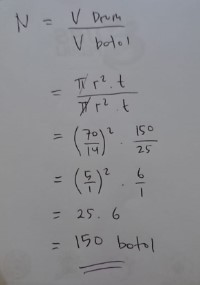 N = V Drum / V botol
= π r² . t / π r² . t
= (70/14)² . 150/25
= (5/1)² . 6/1
= 25 . 6
= 150 botol